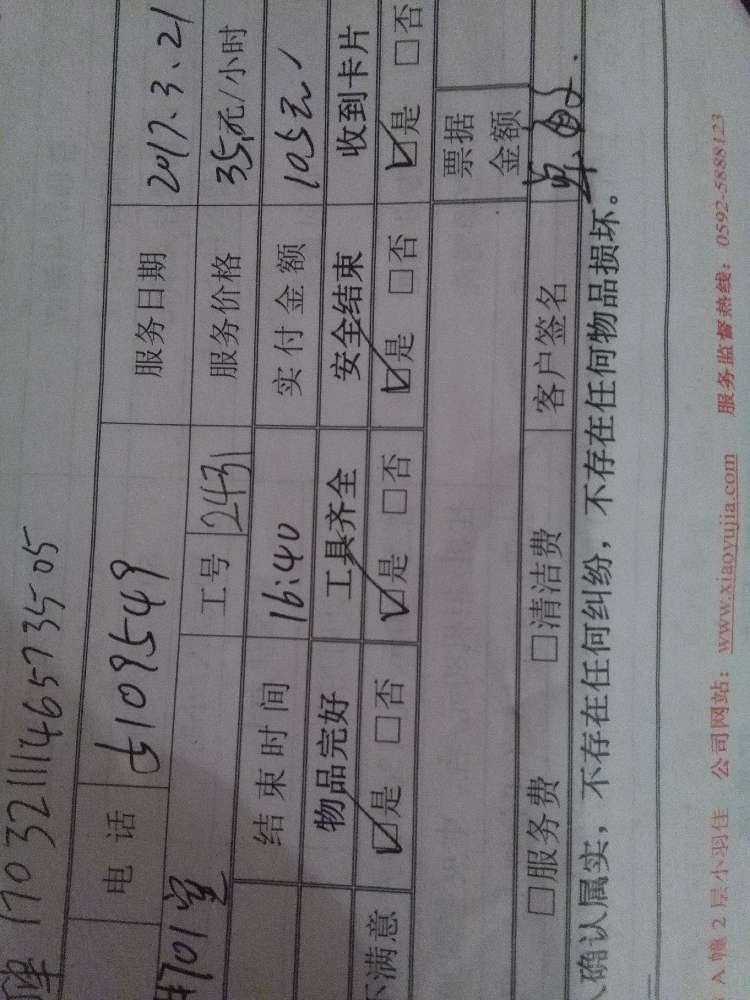 1703211146573505
电话 5109549 服务日期 2017.3.21
#701室 工号 2431 服务价格 35元/小时
结束时间 16:40 实付金额 105元
物品完好 工具齐全 安全结束 收到卡片
不满意 ☑是 □否 ☑是 □否 ☑是 □否 ☑是 □否
票据金额
□服务费 □清洁费 客户签名
确认属实，不存在任何纠纷，不存在任何物品损坏。
A幢2层小羽佳 公司网站：www.xiaoyujia.com 服务监督热线：0592-5888123